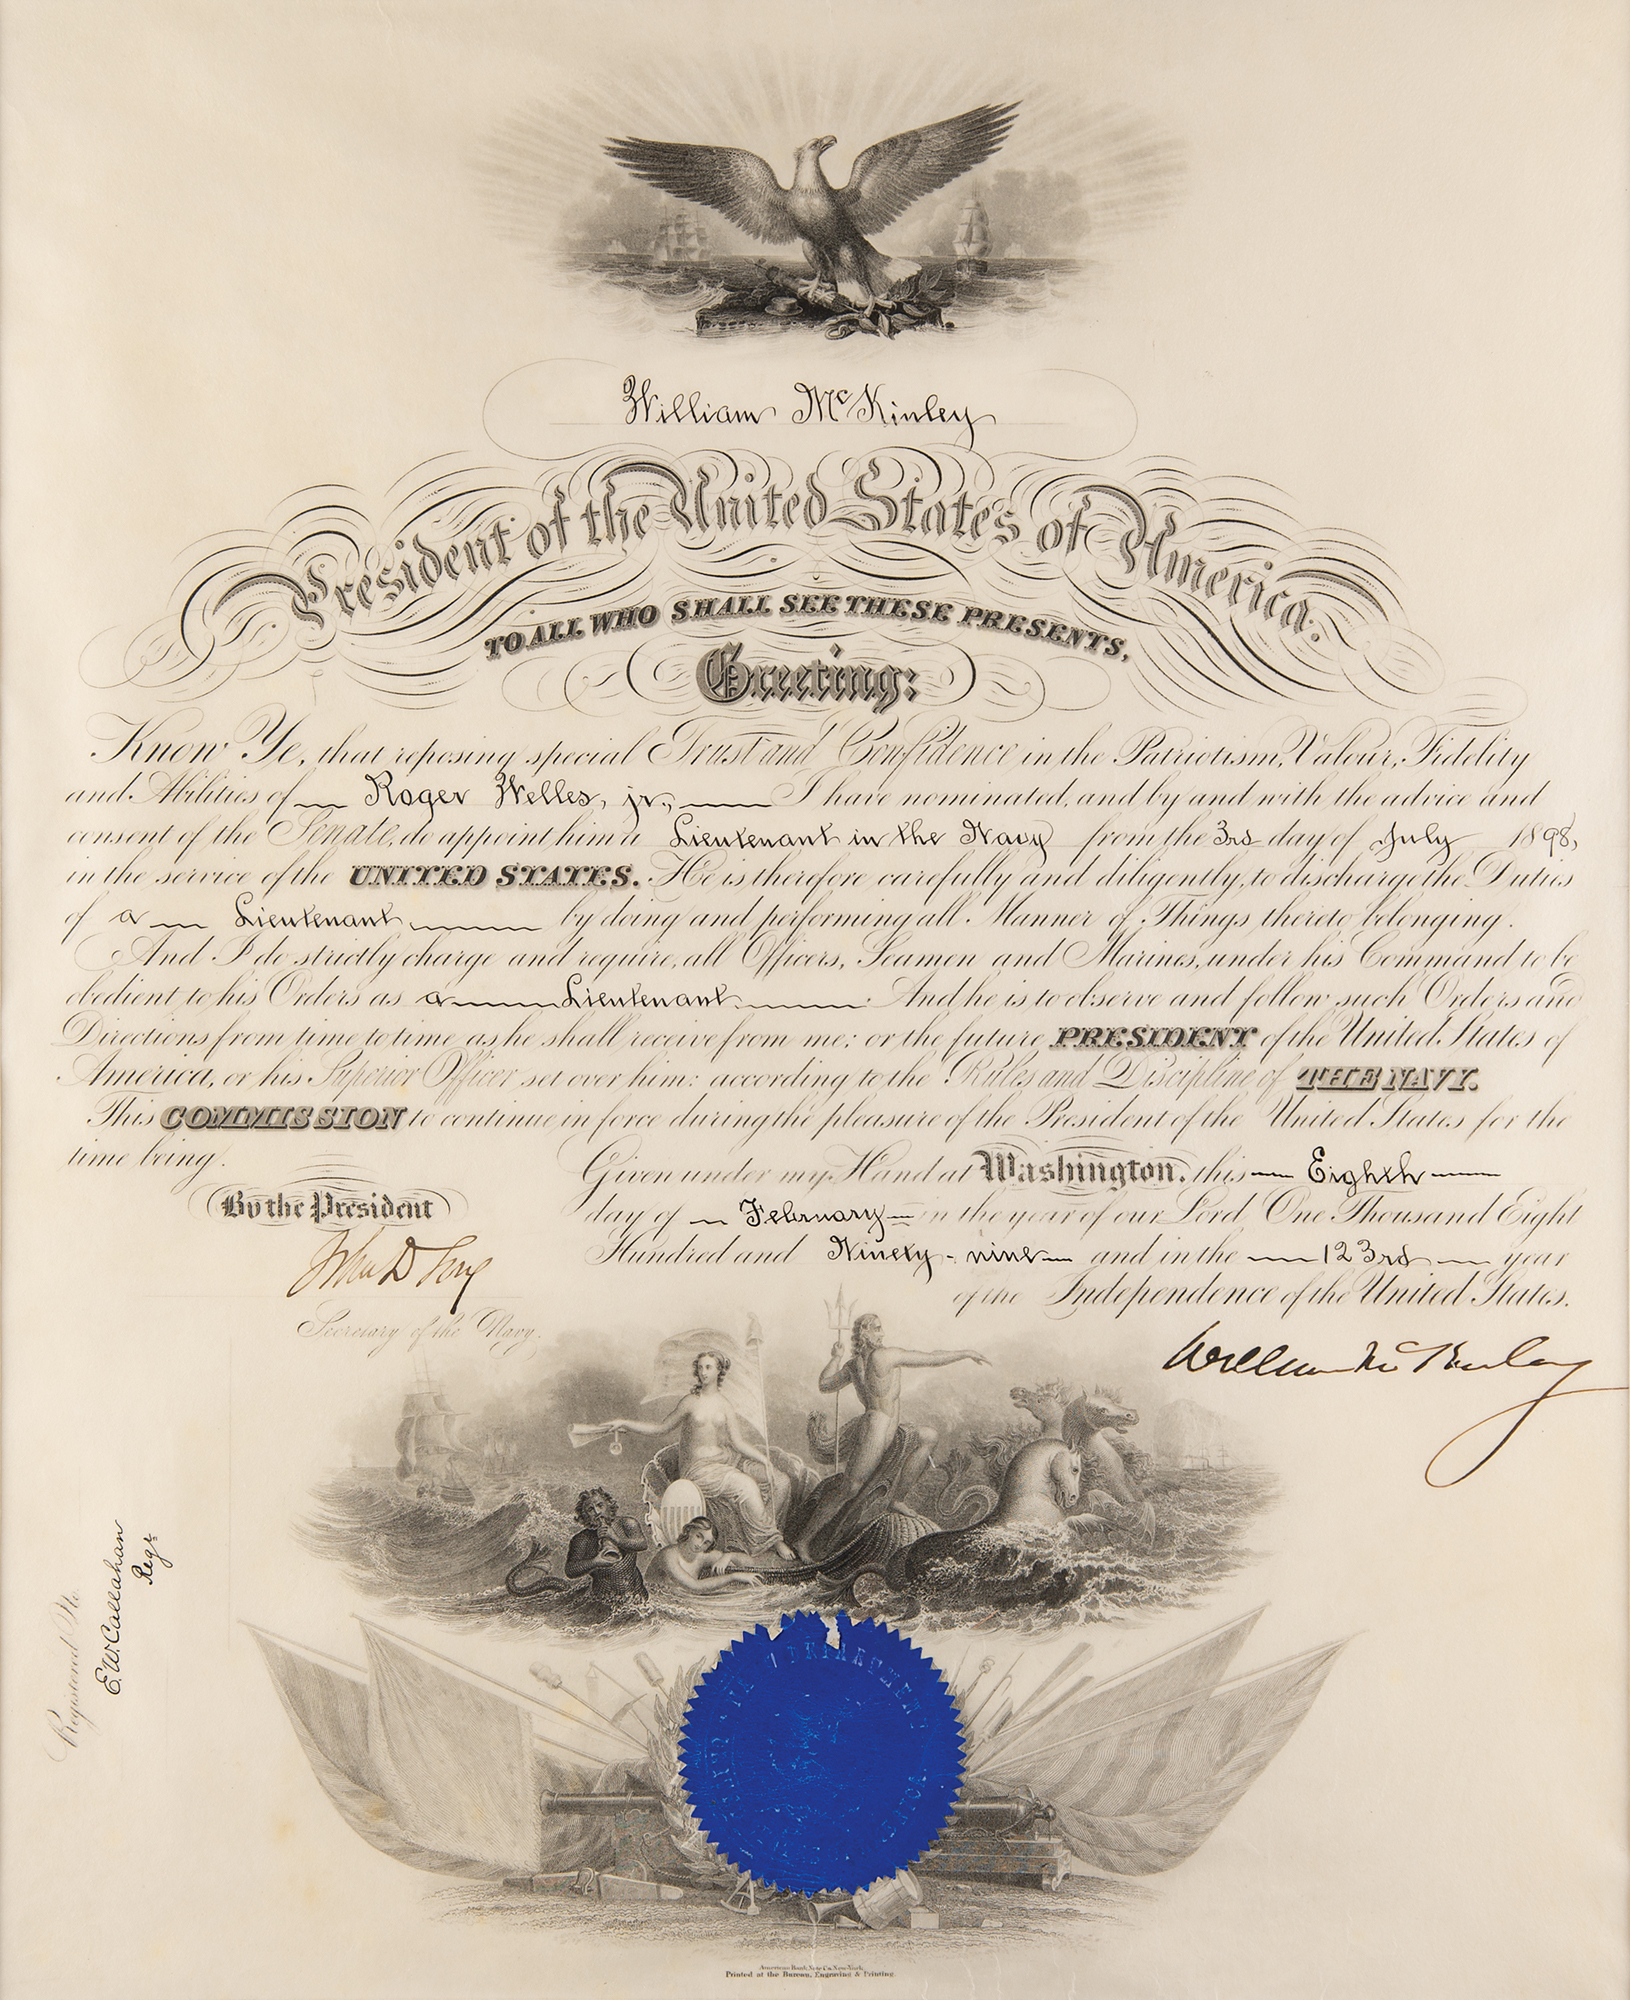 William McKinley
President of the United States of America.
TO ALL WHO SHALL SEE THESE PRESENTS,
Greeting:
Know Ye, that reposing special Trust and Confidence in the Patriotism, Valour, Fidelity
and Abilities of Roger Welles, jr., I have nominated, and by and with the advice and
consent of the Senate, do appoint him a Lieutenant in the Navy from the 3rd day of July 1898,
in the service of the UNITED STATES. He is therefore carefully and diligently, to discharge the Duties
of a Lieutenant by doing and performing all Manner of Things thereto belonging.
And I do strictly charge and require, all Officers, Seamen and Marines, under his Command to be
obedient to his Orders as a Lieutenant. And he is to observe and follow such Orders and
Directions from time to time as he shall receive from me; or the future PRESIDENT of the United States of
America, or his Superior Officer set over him: according to the Rules and Discipline of THE NAVY.
This COMMISSION to continue in force during the pleasure of the President of the United States for the
time being.
Given under my Hand at Washington, this Eighth
day of February in the year of our Lord One Thousand Eight
Hundred and Ninety-nine and in the 123rd year
of the Independence of the United States.
By the President
John D Long
Secretary of the Navy.
William McKinley
Registered No.
E.W. Callahan
Regr
NAVY DEPARTMENT
American Bank Note Co. New-York.
Printed at the Bureau, Engraving & Printing.